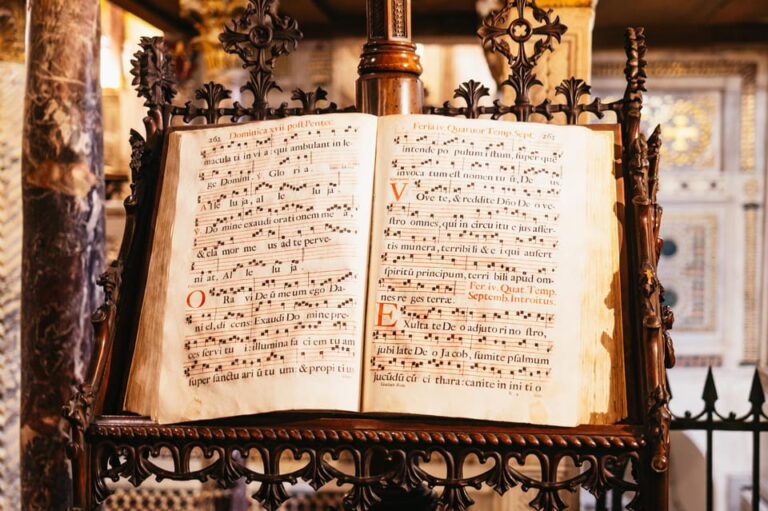 262 Dominica xvii post Pentec.
macula ti in vi a : qui ambulant in le-
ge Domini. ℣ Glo ri a.
Alle lu ja, al le lu ja.
℣. Do mine exaudi orationem me ā
& cla mor me us ad te perve-
ni at. Al le lu ja.
O Ra vi De ū me um ego Da-
ni el, di cens: Exaudi Do mine pre-
ces servi tu i: illumina fa ci em tu am
super sanctu ari ū tu um: & propi ti us
Feria iv. Quatuor Temp. Sept. 263
intende po pulum istum, super quē
invoca tum est nomen tu ū, De us
V Ove te, & reddite Dño De o ve-
stro omnes, qui in circu itu e jus affer-
tis munera, terribi li & e i qui aufert
spiritū principum, terri bili apud om-
nes re ges terræ.
Fer. iv. Quat. Temp.
Septemb. Introitus.
E Xulta te De o adjuto ri no stro,
jubi late De o Ja cob, sumite psalmum
jucūdū cū ci thara: canite in ini ti o